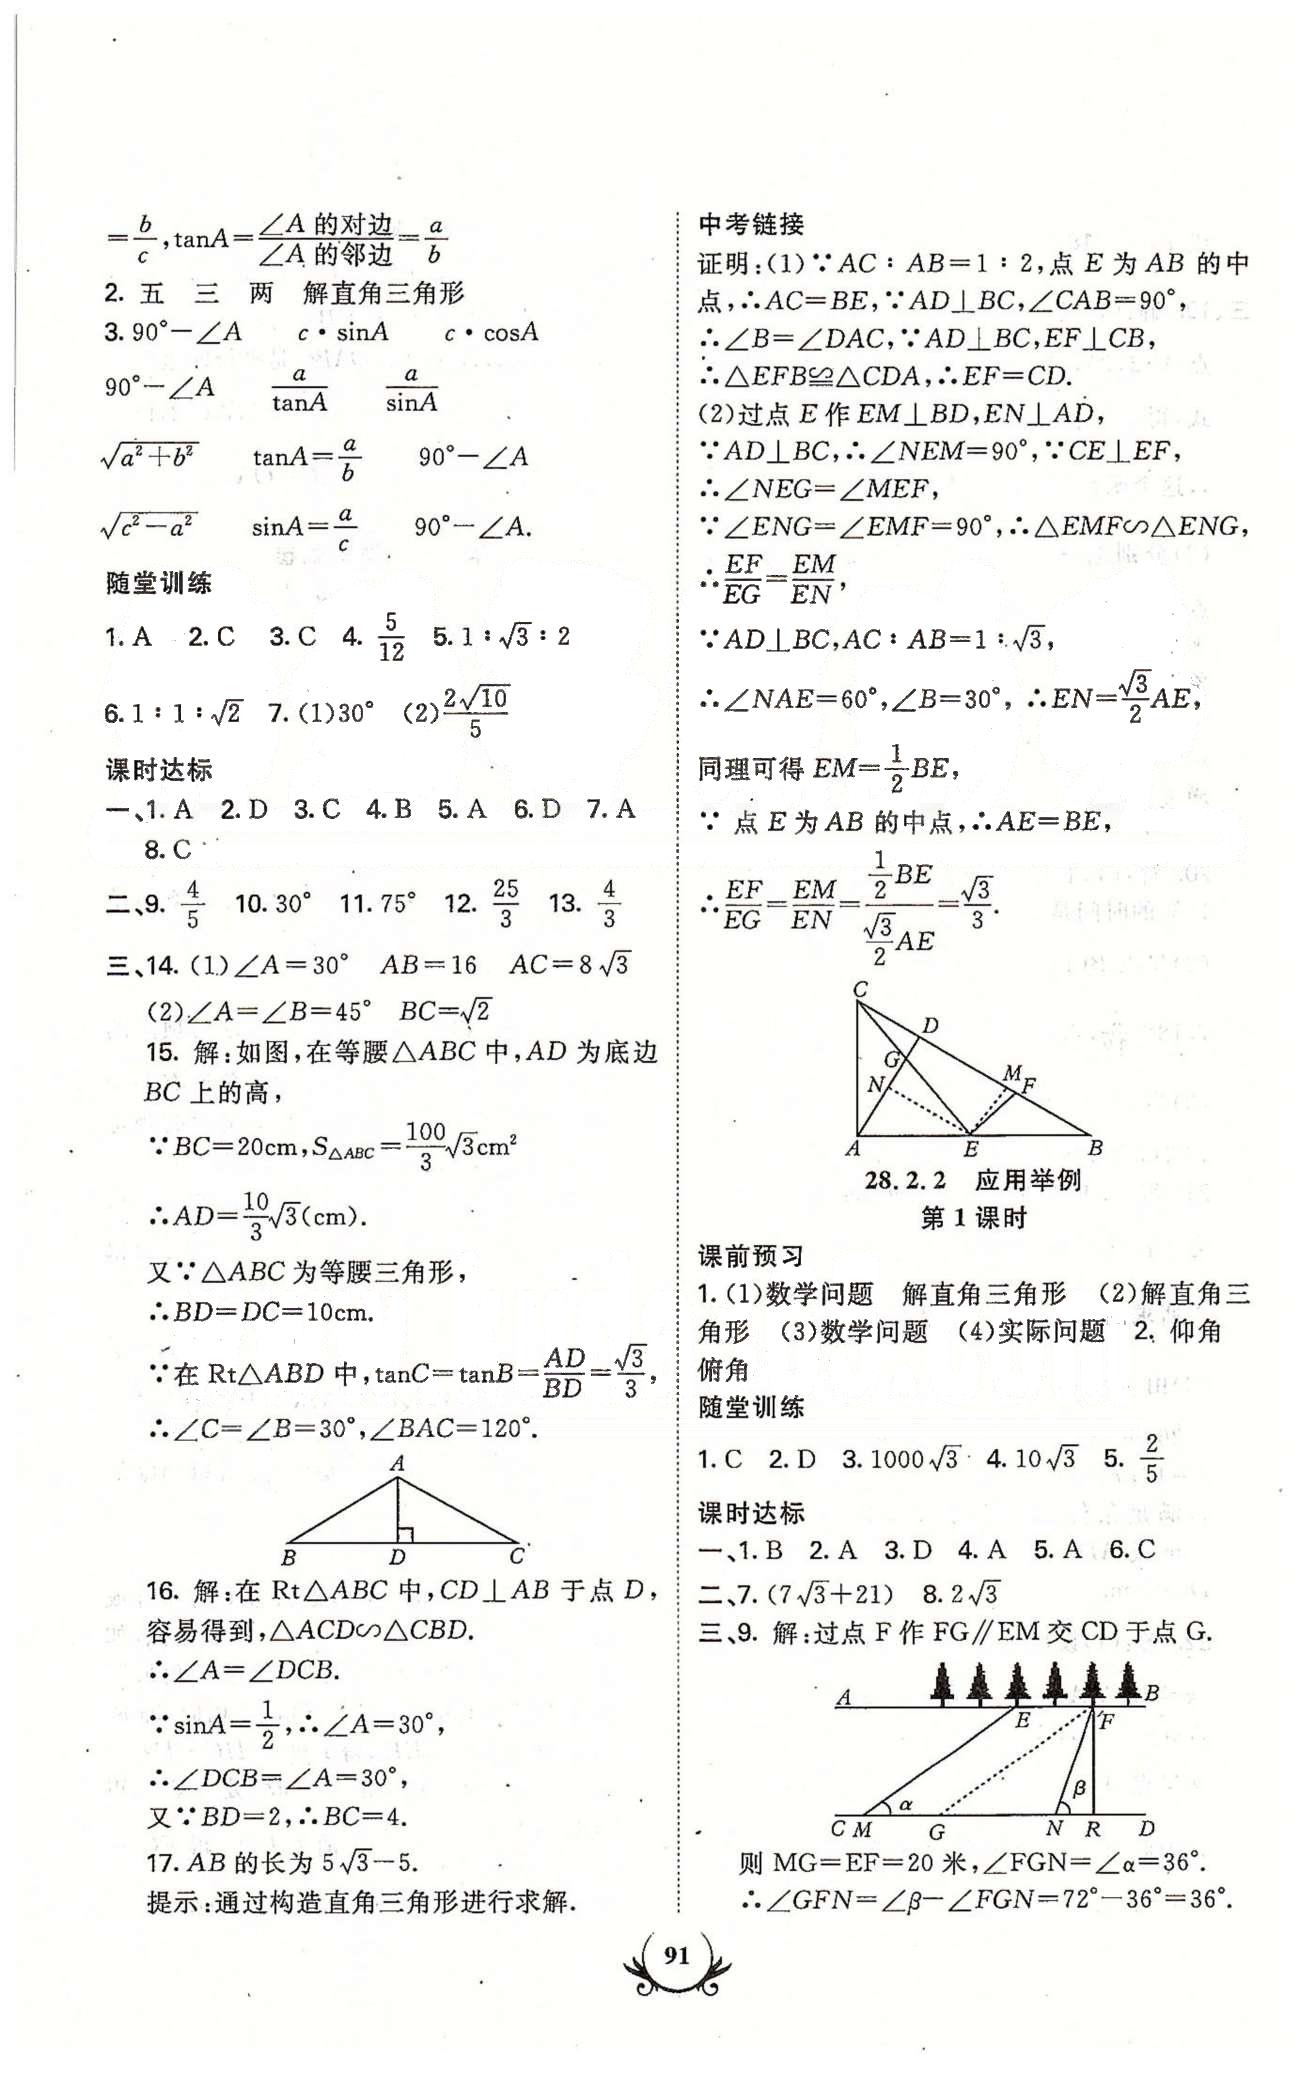 =b/c,tanA=∠A的对边/∠A的邻边=a/b
2. 五 三 两 解直角三角形
3. 90°−∠A c·sinA c·cosA
90°−∠A a/tanA a/sinA
√(a²+b²) tanA=a/b 90°−∠A
√(c²−a²) sinA=a/c 90°−∠A.
随堂训练
1. A 2. C 3. C 4. 5/12 5. 1∶√3∶2
6. 1∶1∶√2 7. (1)30° (2)2√10/5
课时达标
一、1. A 2. D 3. C 4. B 5. A 6. D 7. A
8. C
二、9. 4/5 10. 30° 11. 75° 12. 25/3 13. 4/3
三、14. (1)∠A=30° AB=16 AC=8√3
(2)∠A=∠B=45° BC=√2
15. 解:如图,在等腰△ABC中,AD为底边
BC上的高,
∵BC=20cm,S△ABC=100/3√3cm²
∴AD=10/3√3(cm).
又∵△ABC为等腰三角形,
∴BD=DC=10cm.
∵在Rt△ABD中,tanC=tanB=AD/BD=√3/3,
∴∠C=∠B=30°,∠BAC=120°.
A
B D C
16. 解:在Rt△ABC中,CD⊥AB于点D,
容易得到,△ACD∽△CBD.
∴∠A=∠DCB.
∵sinA=1/2,∴∠A=30°,
∴∠DCB=∠A=30°,
又∵BD=2,∴BC=4.
17. AB的长为5√3−5.
提示:通过构造直角三角形进行求解.
中考链接
证明:(1)∵AC∶AB=1∶2,点E为AB的中
点,∴AC=BE,∵AD⊥BC,∠CAB=90°,
∴∠B=∠DAC,∵AD⊥BC,EF⊥CB,
∴△EFB≌△CDA,∴EF=CD.
(2)过点E作EM⊥BD,EN⊥AD,
∵AD⊥BC,∴∠NEM=90°,∵CE⊥EF,
∴∠NEG=∠MEF,
∵∠ENG=∠EMF=90°,∴△EMF∽△ENG,
∴EF/EG=EM/EN,
∵AD⊥BC,AC∶AB=1∶√3,
∴∠NAE=60°,∠B=30°,∴EN=√3/2AE,
同理可得EM=1/2BE,
∵点E为AB的中点,∴AE=BE,
∴EF/EG=EM/EN=(1/2BE)/(√3/2AE)=√3/3.
C
D
G
M
N F
A E B
28.2.2 应用举例
第1课时
课前预习
1. (1)数学问题 解直角三角形 (2)解直角三
角形 (3)数学问题 (4)实际问题 2. 仰角
俯角
随堂训练
1. C 2. D 3. 1000√3 4. 10√3 5. 2/5
课时达标
一、1. B 2. A 3. D 4. A 5. A 6. C
二、7. (7√3+21) 8. 2√3
三、9. 解:过点F作FG∥EM交CD于点G.
A B
E F
α β
C M G N R D
则MG=EF=20米,∠FGN=∠α=36°.
∴∠GFN=∠β−∠FGN=72°−36°=36°.
91